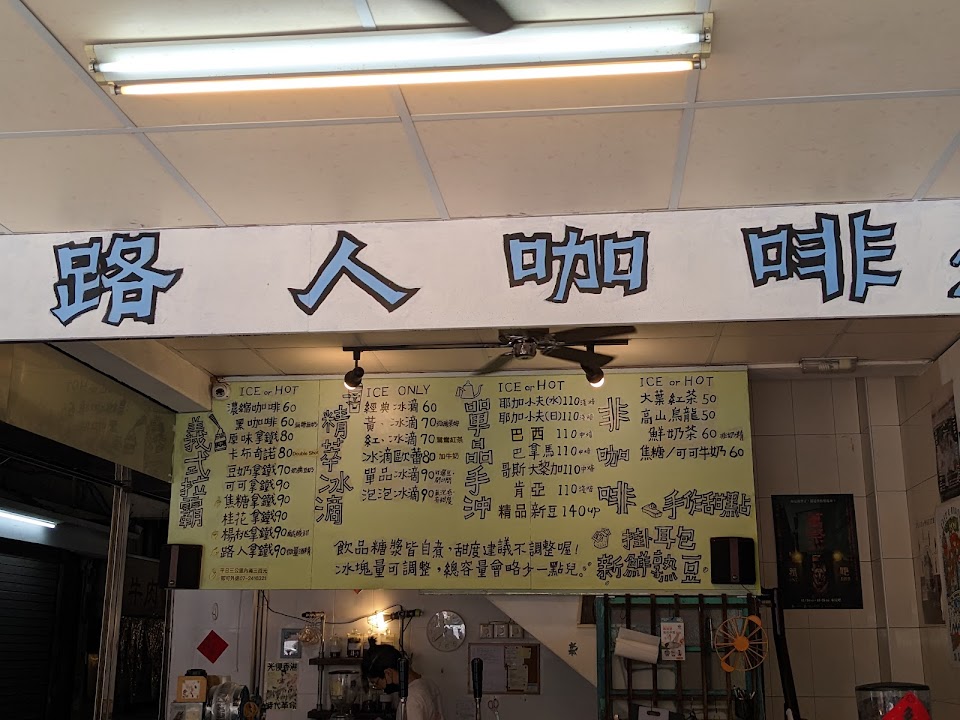 路人咖啡
義式拉霸
ICE or HOT
濃縮咖啡 60
黑咖啡 60
原味拿鐵 80
卡布奇諾 80 Double Shot
豆奶拿鐵 90
可可拿鐵 90
焦糖拿鐵 90
桂花拿鐵 90
楊枝拿鐵 90
路人拿鐵 90
精萃冰滴
ICE ONLY
經典冰滴 60
黃、冰滴 70
紅、冰滴 70 鴛鴦紅茶
冰滴歐蕾 80 加牛奶
單品冰滴 90
泡泡冰滴 90
單品手沖
ICE or HOT
耶加卡夫(水) 110 淺焙
耶加卡夫(日) 110 淺焙
巴西 110 中焙
巴拿馬 110 中焙
哥斯大黎加 110 中焙
肯亞 110 淺焙
精品新豆 140 up
非咖啡
ICE or HOT
大葉紅茶 50
高山烏龍 50
鮮奶茶 60 非奶精
焦糖/可可牛奶 60
手作甜點
掛耳包
新鮮熟豆
飲品糖漿皆自煮,甜度建議不調整喔!
冰塊量可調整,總容量會略少一點兒。
天佑香港
時代革命